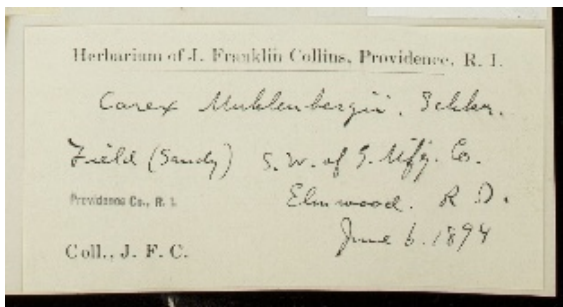 Herbarium of J. Franklin Collins, Providence, R. I.
Carex Muhlenbergii. Schkr.
Field (Sandy) S. W. of G. Mfg. Co.
Providence Co., R. I.
Elmwood. R. I.
June 6. 1894
Coll., J. F. C.